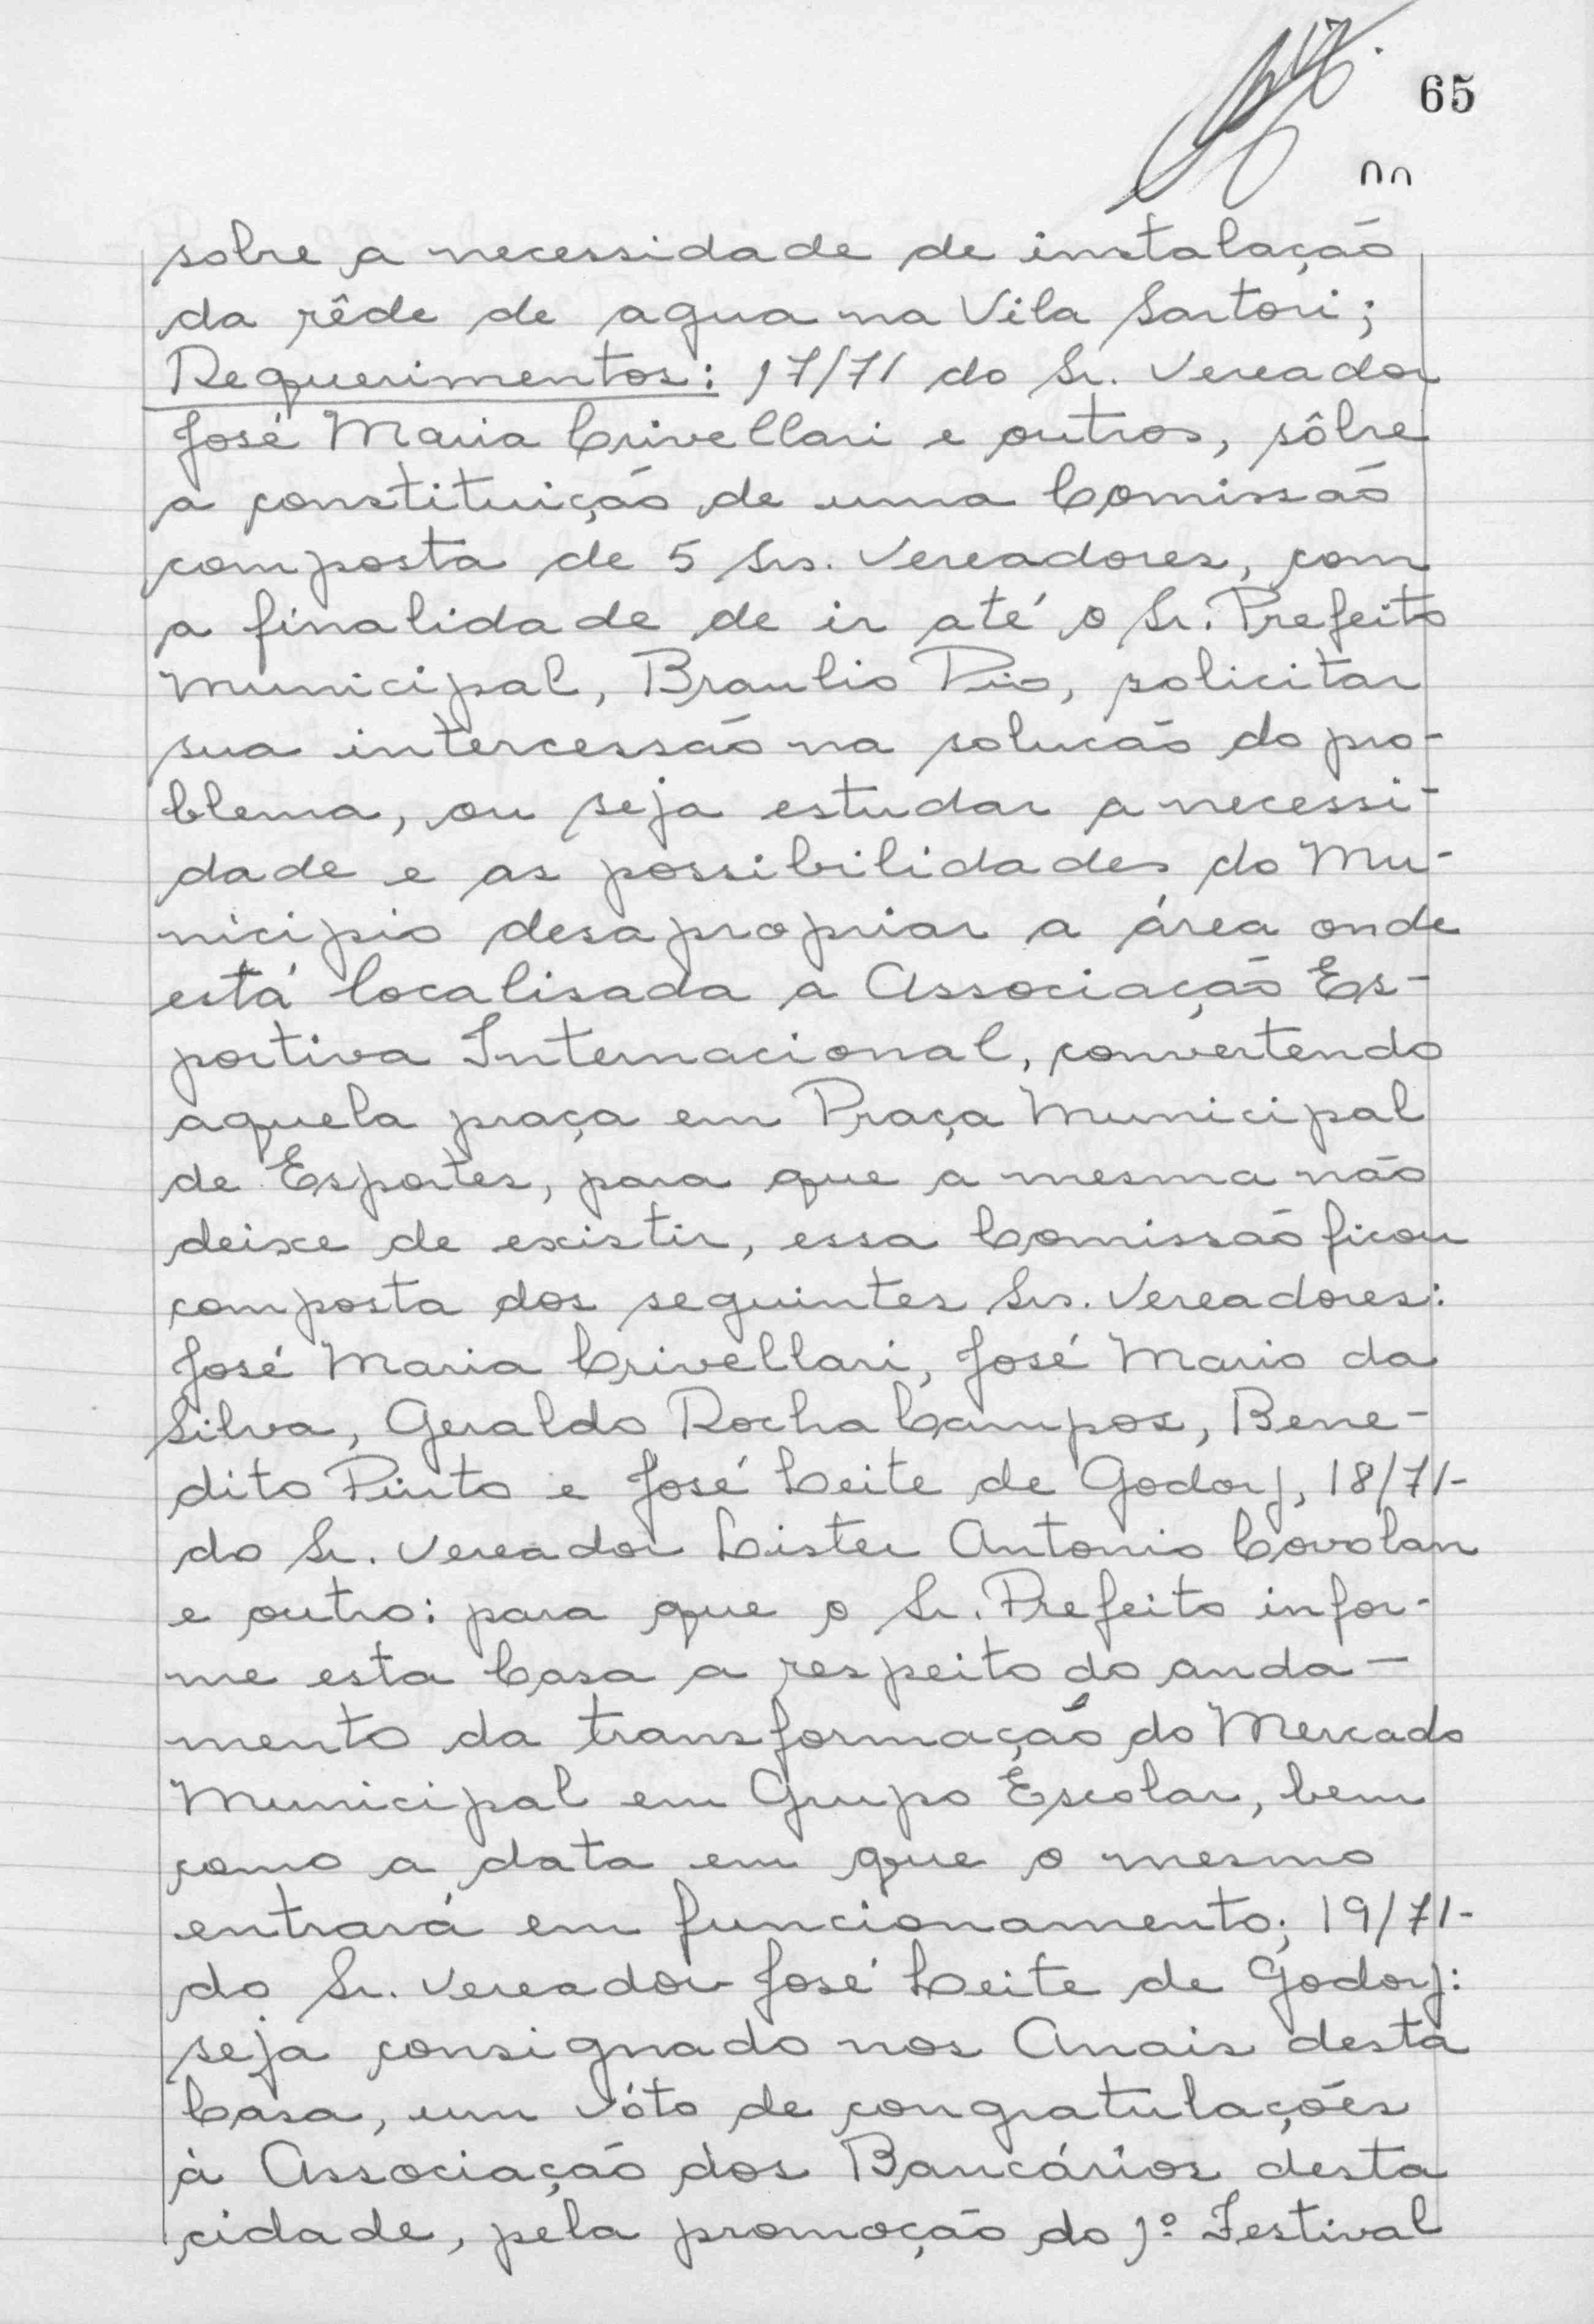 65
sobre a necessidade de instalação
da rêde de agua na Vila Sartori;
Requerimentos: 17/71 do Sr. Vereador
José Maria Crivellari e outros, sôbre
a constituição de uma Comissão
composta de 5 Srs. Vereadores, com
a finalidade de ir até o Sr. Prefeito
Municipal, Braulio Pio, solicitar
sua intercessão na solucão do pro-
blema, ou seja estudar a necessi-
dade e as possibilidades do Mu-
nicipio desapropriar a área onde
está localisada a Associação Es-
portiva Internacional, convertendo
aquela praça em Praça Municipal
de Esportes, para que a mesma não
deixe de existir, essa Comissão ficou
composta dos seguintes Srs. Vereadores:
José Maria Crivellari, José Mario da
Silva, Geraldo Rocha Campos, Bene-
dito Pinto e José Leite de Godoy, 18/71-
do Sr. Vereador Lister Antonio Covolan
e outro: para que o Sr. Prefeito infor-
me esta Casa a respeito do anda-
mento da transformação do Mercado
Municipal em Grupo Escolar, bem
como a data em que o mesmo
entrará em funcionamento; 19/71-
do Sr. Vereador José Leite de Godoy:
seja consignado nos Anais desta
Casa, um vóto de congratulações
à Associação dos Bancários desta
cidade, pela promoção do 1º Festival